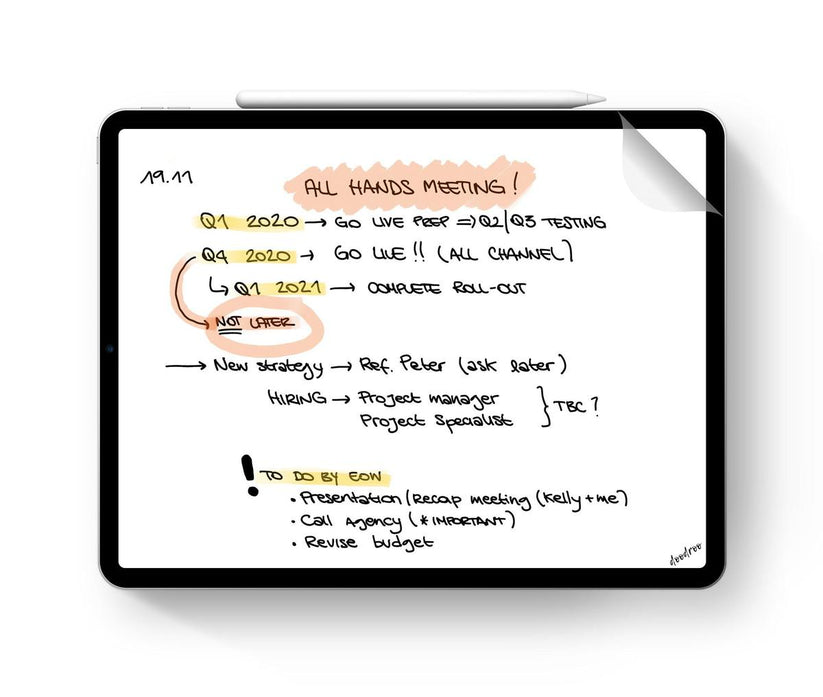 19.11
ALL HANDS MEETING!
Q1 2020 → GO LIVE PREP => Q2/Q3 TESTING
Q4 2020 → GO LIVE!! (ALL CHANNEL)
↳ Q1 2021 → COMPLETE ROLL-OUT
NOT LATER
→ New strategy → Ref. Peter (ask later)
HIRING → Project manager
Project Specialist } TBC?
! TO DO BY EOW
• Presentation/Recap meeting (Kelly + me)
• Call Agency (* IMPORTANT)
• Revise budget
doodroo